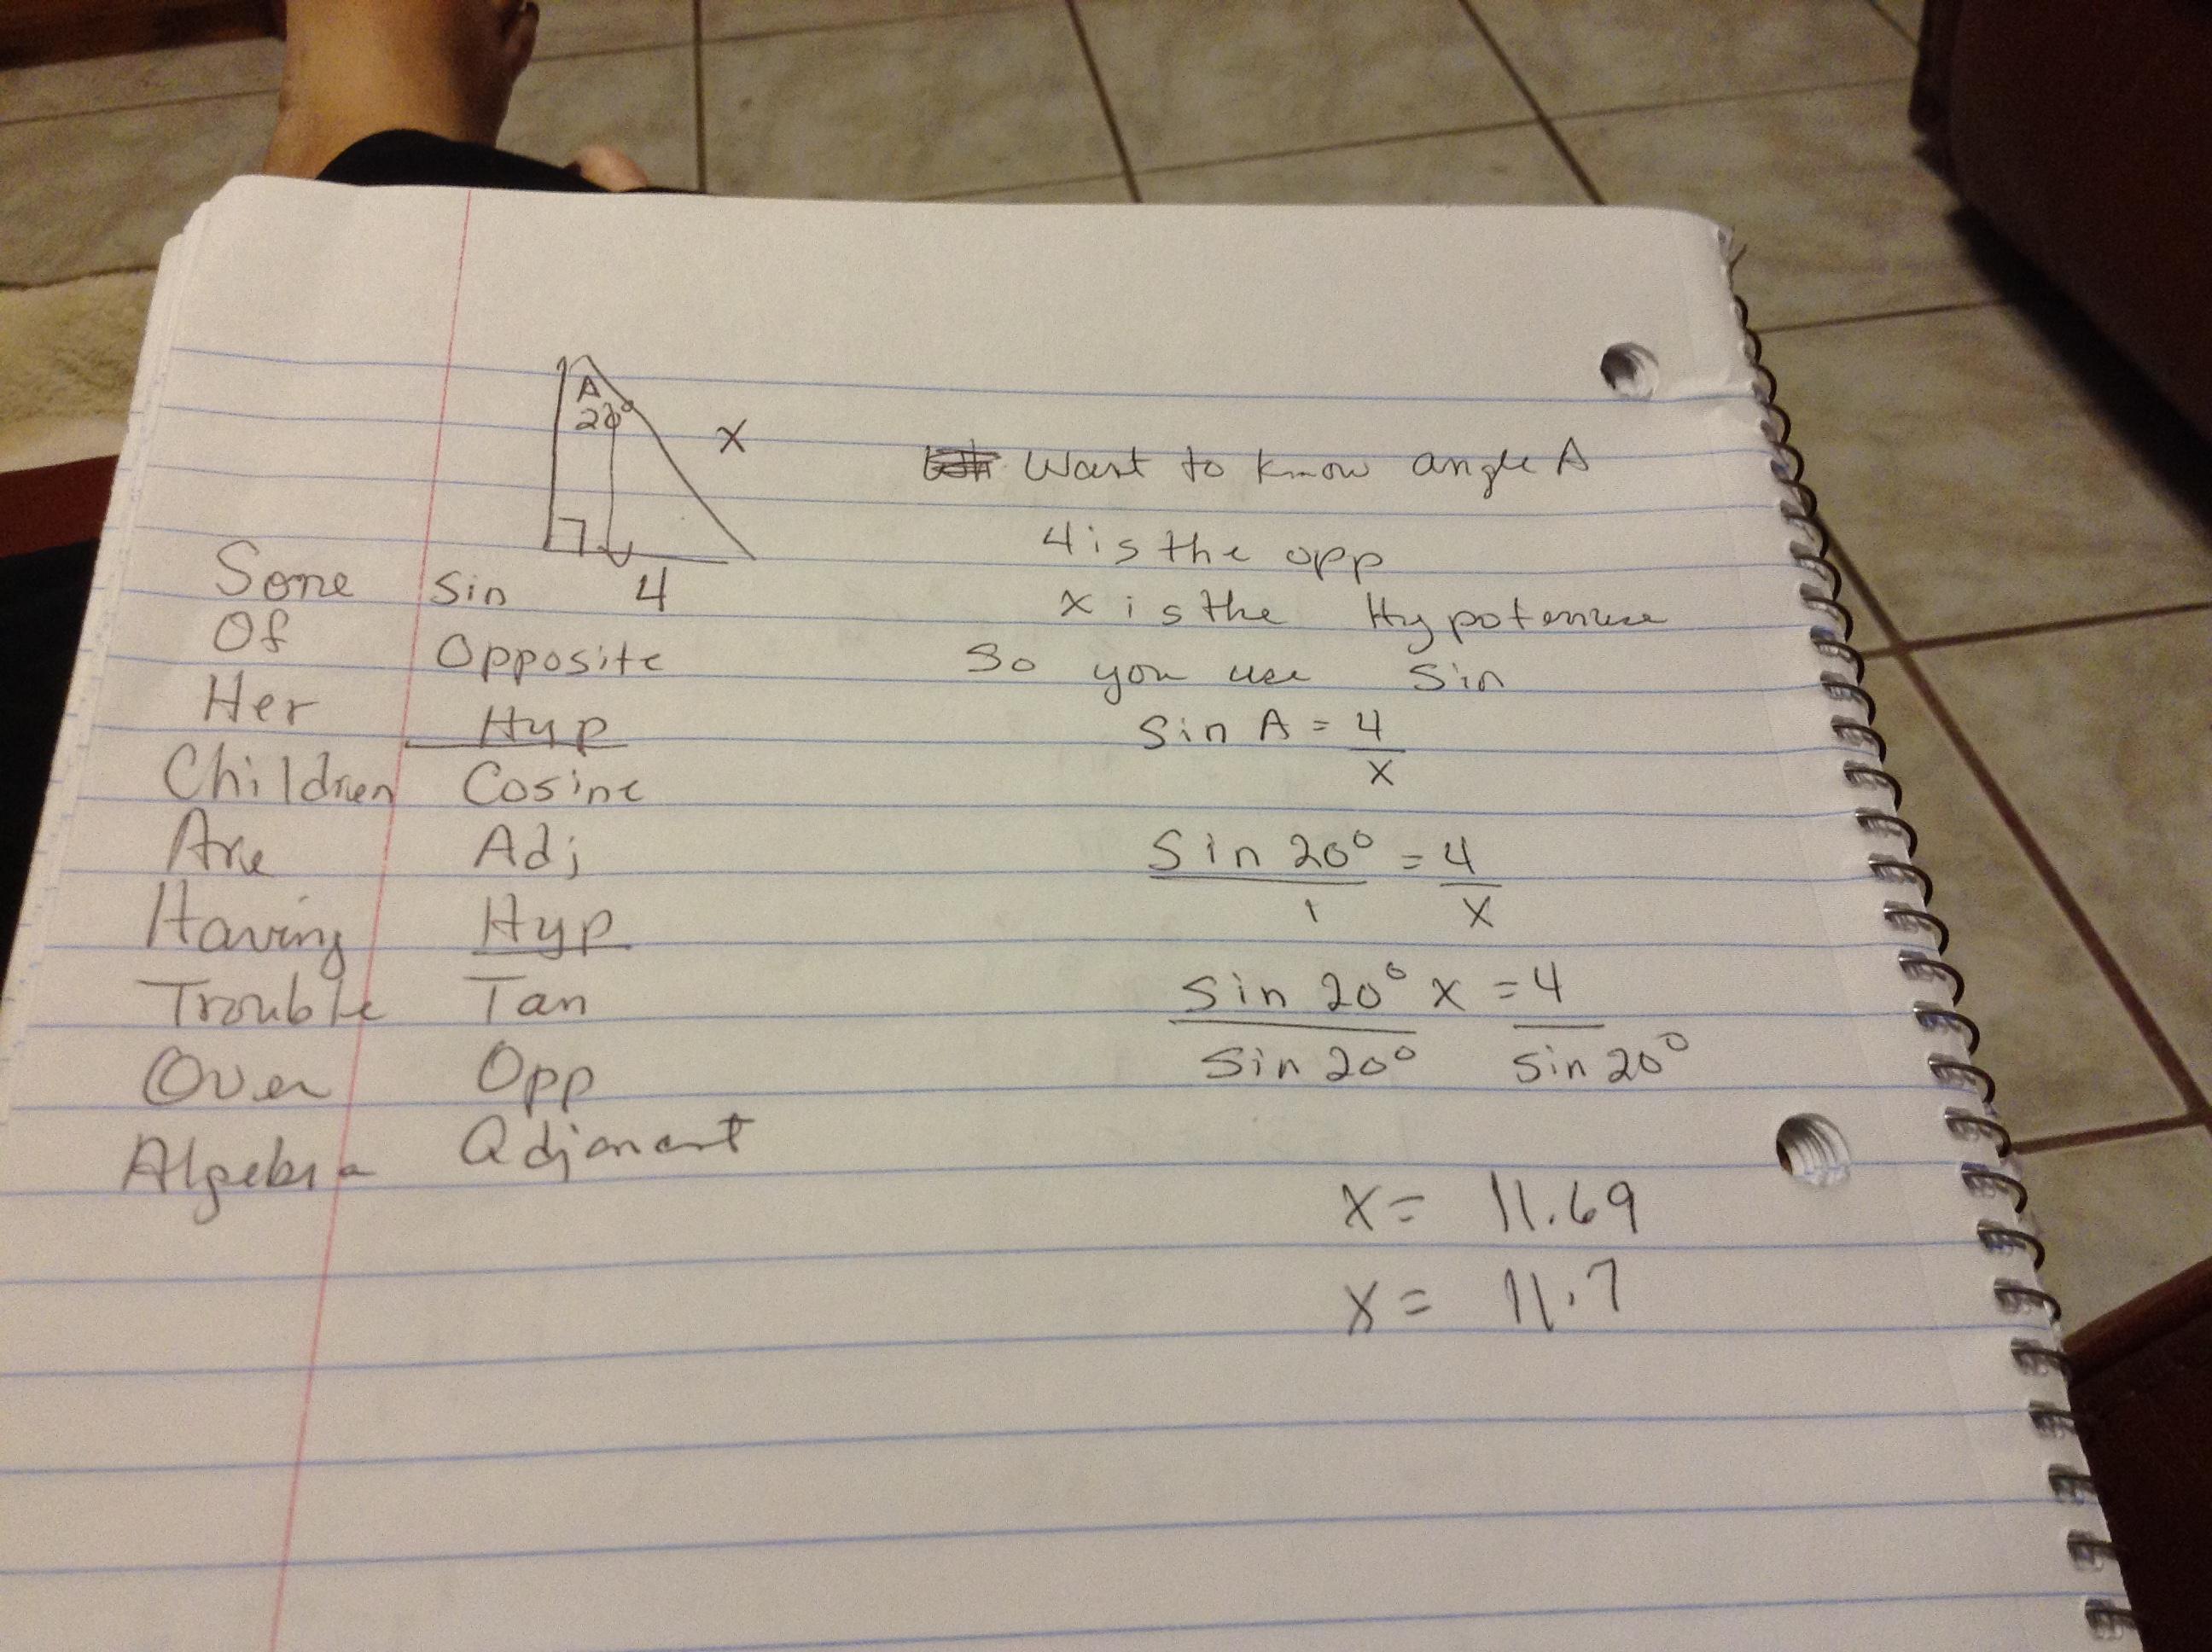 A
20°
x
4
Some Sin
Of Opposite
Her Hyp
Children Cosine
Are Adj
Having Hyp
Trouble Tan
Over Opp
Algebra
Want to know angle A
4 is the opp
x is the Hypotenuse
So you use Sin
Sin A = 4
x
Sin 20° = 4
1 x
Sin 20° x = 4
Sin 20° Sin 20°
x = 11.69
x = 11.7